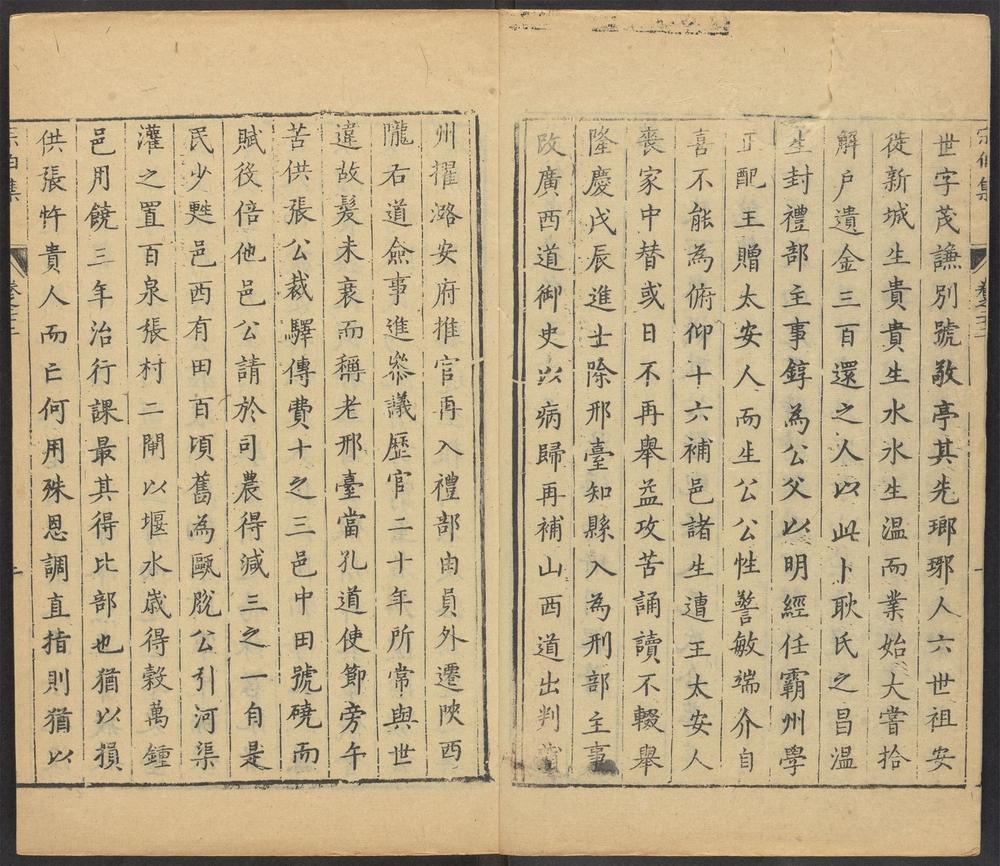 宗伯集
卷之二十二
世字茂謙別號敬亭其先瑯琊人六世祖安
徙新城生貴貴生水氷生溫而業始大嘗拾
解戶遺金三百還之人以此卜耿氏之昌溫
生封禮部主事錞為公父以明經任霸州學
正配王贈太安人而生公公性警敏端介自
喜不能為俯仰十六補邑諸生遭王太安人
喪家中替或日不再舉益攻苦誦讀不輟舉
隆慶戊辰進士除邢臺知縣入為刑部主事
改廣西道御史以病歸再補山西道出判
州擢潞安府推官再入禮部由員外遷陝西
隴右道僉事進叅議歷官二十年所常與世
違故髮未衰而稱老邢臺當孔道使節旁午
苦供張公裁驛傳費十之三邑中田號磽而
賦後倍他邑公請於司農得減三之一自是
民少甦邑西有田百頃舊為甌脫公引河渠
灌之置百泉張村二閘以堰水歲得穀萬鍾
邑用饒三年治行課最其得比部也猶以損
供張忤貴人而亡何用殊恩調直指則猶以
宗伯集